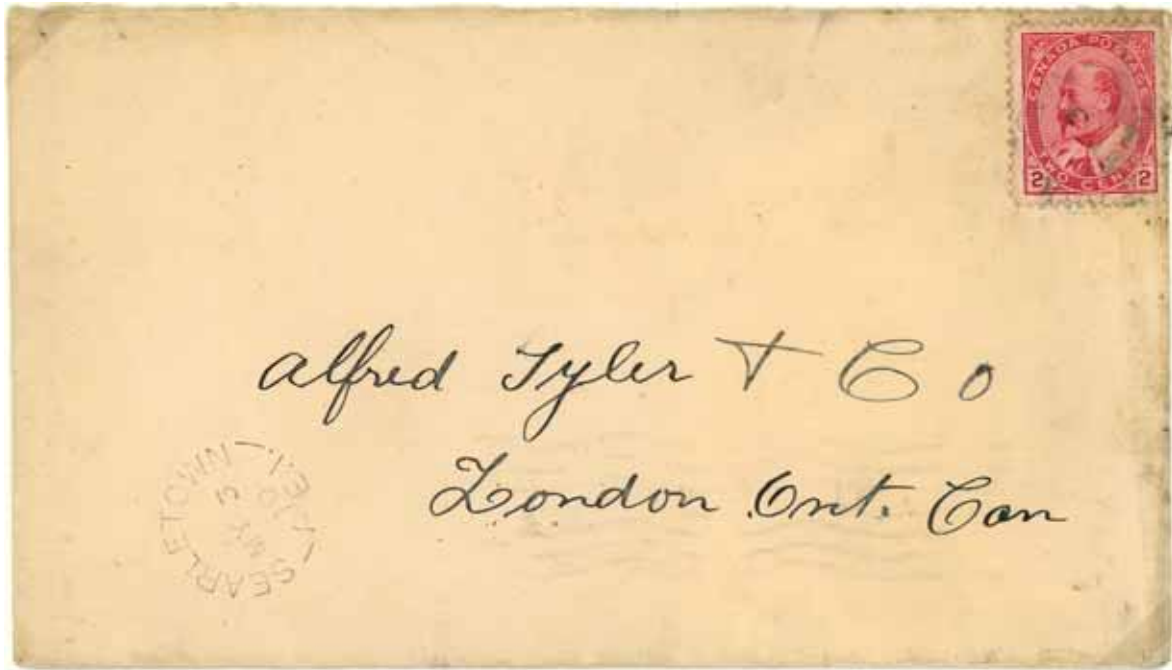 CANADA POSTAGE
2 TWO CENTS 2
Alfred Tyler & Co
London Ont. Can
SEARLETOWN
P.E.I.
MY 5